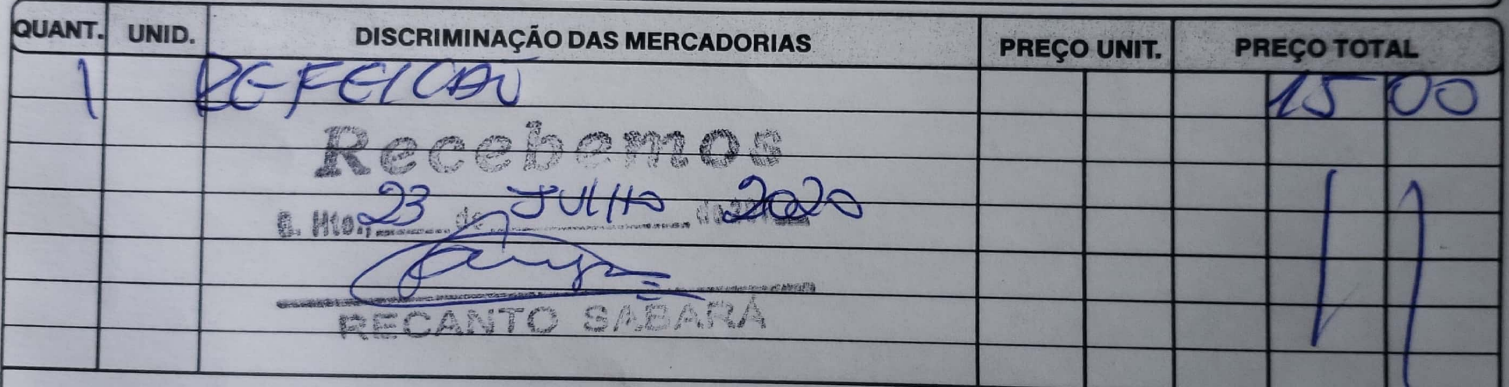 QUANT. UNID. DISCRIMINAÇÃO DAS MERCADORIAS PREÇO UNIT. PREÇO TOTAL
1 REFEICAO 15 00
Recebemos
B. Hte., 23 de JULHO de 2020
RECANTO SABARÁ